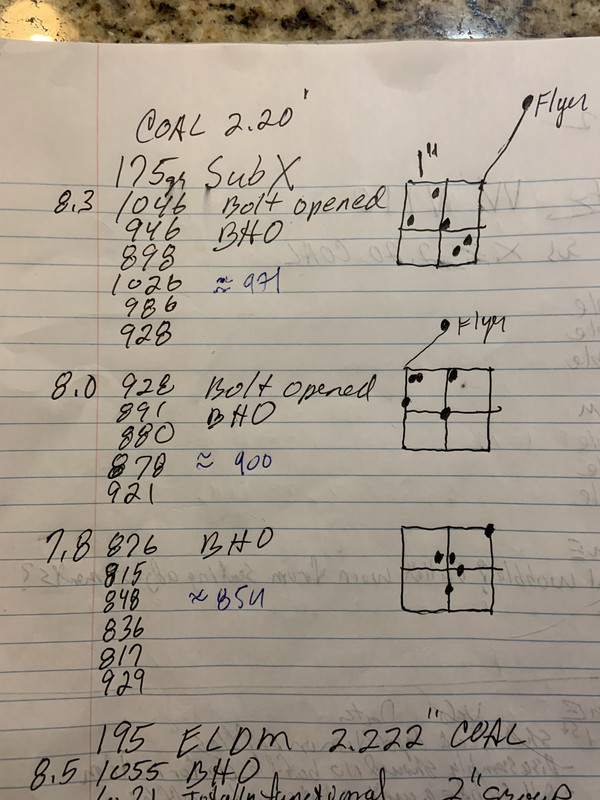 COAL 2.20"
Flyer
1"
175gr Sub X
8.3 1046 Bolt opened
946 BHO
898
1026 ≈ 971
986
928
Flyer
8.0 928 Bolt opened
891 BHO
880
878 ≈ 900
921
7.8 876 BHO
815
848 ≈ 854
836
817
929
195 ELDM 2.222" COAL
8.5 1055 BHO
1021 totally functional 2" group